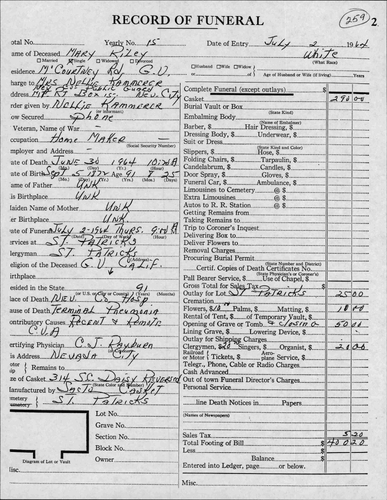 RECORD OF FUNERAL
259
2
otal No.
Yearly No. 15
Date of Entry July 2 1964
ame of Deceased Mary Riley
White
(What Race)
Married
Single
Widowed
Divorced
Husband
Wife
Widow
of
Age of Husband or Wife (if living)
Years
esidence McCourtney Rd, G.V.
harge to Mrs Nellie Kammerer
Public Guard
Nev. City
rder given by Nellie Kammerer
ow Secured Phone
Veteran, Name of War -
ccupation Home Maker
(Social Security Number)
mployer and Address
ate of Death June 30 1964 10:20 A
ate of Birth Sept 5 1872 Age 91 9 25
(Years)
(Months)
(Days)
ame of Father Unk
er Birthplace Unk
aiden Name of Mother Unk
er Birthplace Unk
ate of Funeral July 2-1964 Thurs. 9:00 A
ervices at St. Patricks
lergyman St. Patricks
eligion of the Deceased G.V. Calif.
irthplace
esided in the State 91
lace of Death Nev. Co. Hosp
ause of Death Terminal Pneumonia
ontributory Causes Recent & Remote
C.V.A
ertifying Physician C.J. Rayburn
is Address Nevada City
otor
Remains to
ze of Casket 314 SC. Daisy
anufactured by Sacto Casket
emetery
St. Patricks
Lot No.
Grave No.
Section No.
Block No.
Owner
Diagram of Lot or Vault
Misc.
Complete Funeral (except outlays) $
Casket 290 00
Burial Vault or Box
(State Kind)
Embalming Body
Barber, $ Hair Dressing, $
Dressing Body, $ Underwear, $
Suit or Dress
(State Kind and Color)
Slippers, $ Hose, $
Folding Chairs, $ Tarpaulin, $
Candelabrum, $ Candles, $
Door Spray, $ Gloves, $
Funeral Car, $ Ambulance, $
Limousines to Cemetery @ $
Extra Limousines @ $
Autos to R. R. Station @ $
Getting Remains from
Taking Remains to
Trip to Coroner's Inquest
Delivering Box to
Deliver Flowers to
Removal Charges
Procuring Burial Permit
(State Number and District)
Certif. Copies of Death Certificates No.
(State Physician's or Coroner's)
Pall Bearer Service, $ Use of Chapel, $
Gross Total for Sales Tax $
Outlay for Lot St Patricks 25 00
Cremation
Flowers, $10 Palms, $ Matting, $ 10 00
Rental of Tent, $ of Temporary Vault, $
Opening of Grave or Tomb & closing 50 00
Lining Grave, $ Lowering Device, $
Outlay for Shipping Charges
Clergymen, $20 Singers, $ Organist, $ 20 00
Railroad or Motor
Tickets, $
Aeroplane Service, $
Telegr., Phone, Cable or Radio Charges
Cash Advanced
Out of town Funeral Director's Charges
Personal Service
line Death Notices in Papers
(Names of Newspapers)
Sales Tax 5 20
Total Footing of Bill $ 400 20
Less
Balance $
Entered into Ledger, page or below.
Misc.